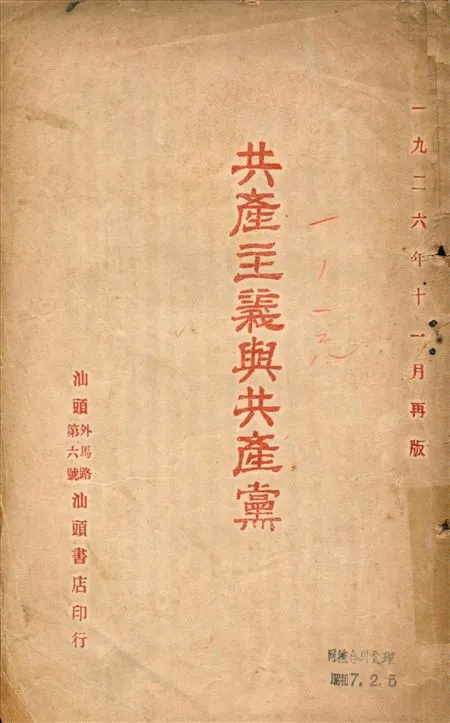 一九二六年十一月再版
共產主義與共產黨
汕頭外馬路第六號汕頭書店印行
7.2.5